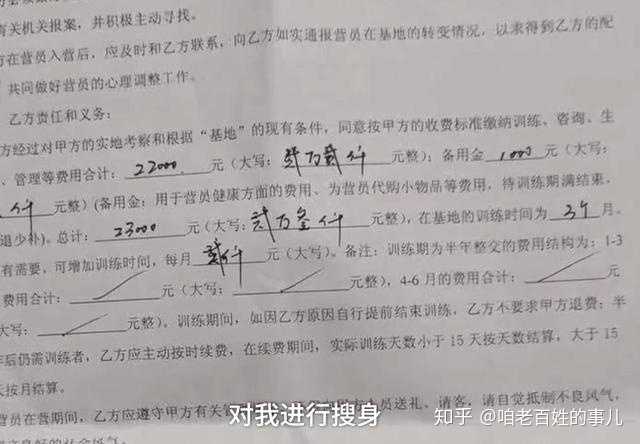 有关机关报案，并积极主动寻找。
方在营员入营后，应及时和乙方联系，向乙方如实通报营员在基地的转变情况，以求得到乙方的配
共同做好营员的心理调整工作。
乙方责任和义务：
方经过对甲方的实地考察和根据“基地”的现有条件，同意按甲方的收费标准缴纳训练、咨询、生
、管理等费用合计：22000元（大写：贰万贰仟元整）；备用金1000元（大写：
仟元整）（备用金：用于营员健康方面的费用、为营员代购小物品等费用，待训练期满结束，
退少补）。总计：23000元（大写：贰万叁仟元整），在基地的训练时间为3个月。
有需要，可增加训练时间，每月贰仟元（大写）。备注：训练期为半年整交的费用结构为：1-3
费用合计：元（大写：元整），4-6月的费用合计：元
大写：元整）。训练期间，如因乙方原因自行提前结束训练，乙方不要求甲方退费；半
年后仍需训练者，乙方应主动按时续费，在续费期间，实际训练天数小于15天按天数结算，大于15
天按月结算。
营员在营期间，乙方应遵守甲方有关管员送礼、请客，请自觉抵制不良风气，
对我进行搜身
知乎 @咱老百姓的事儿